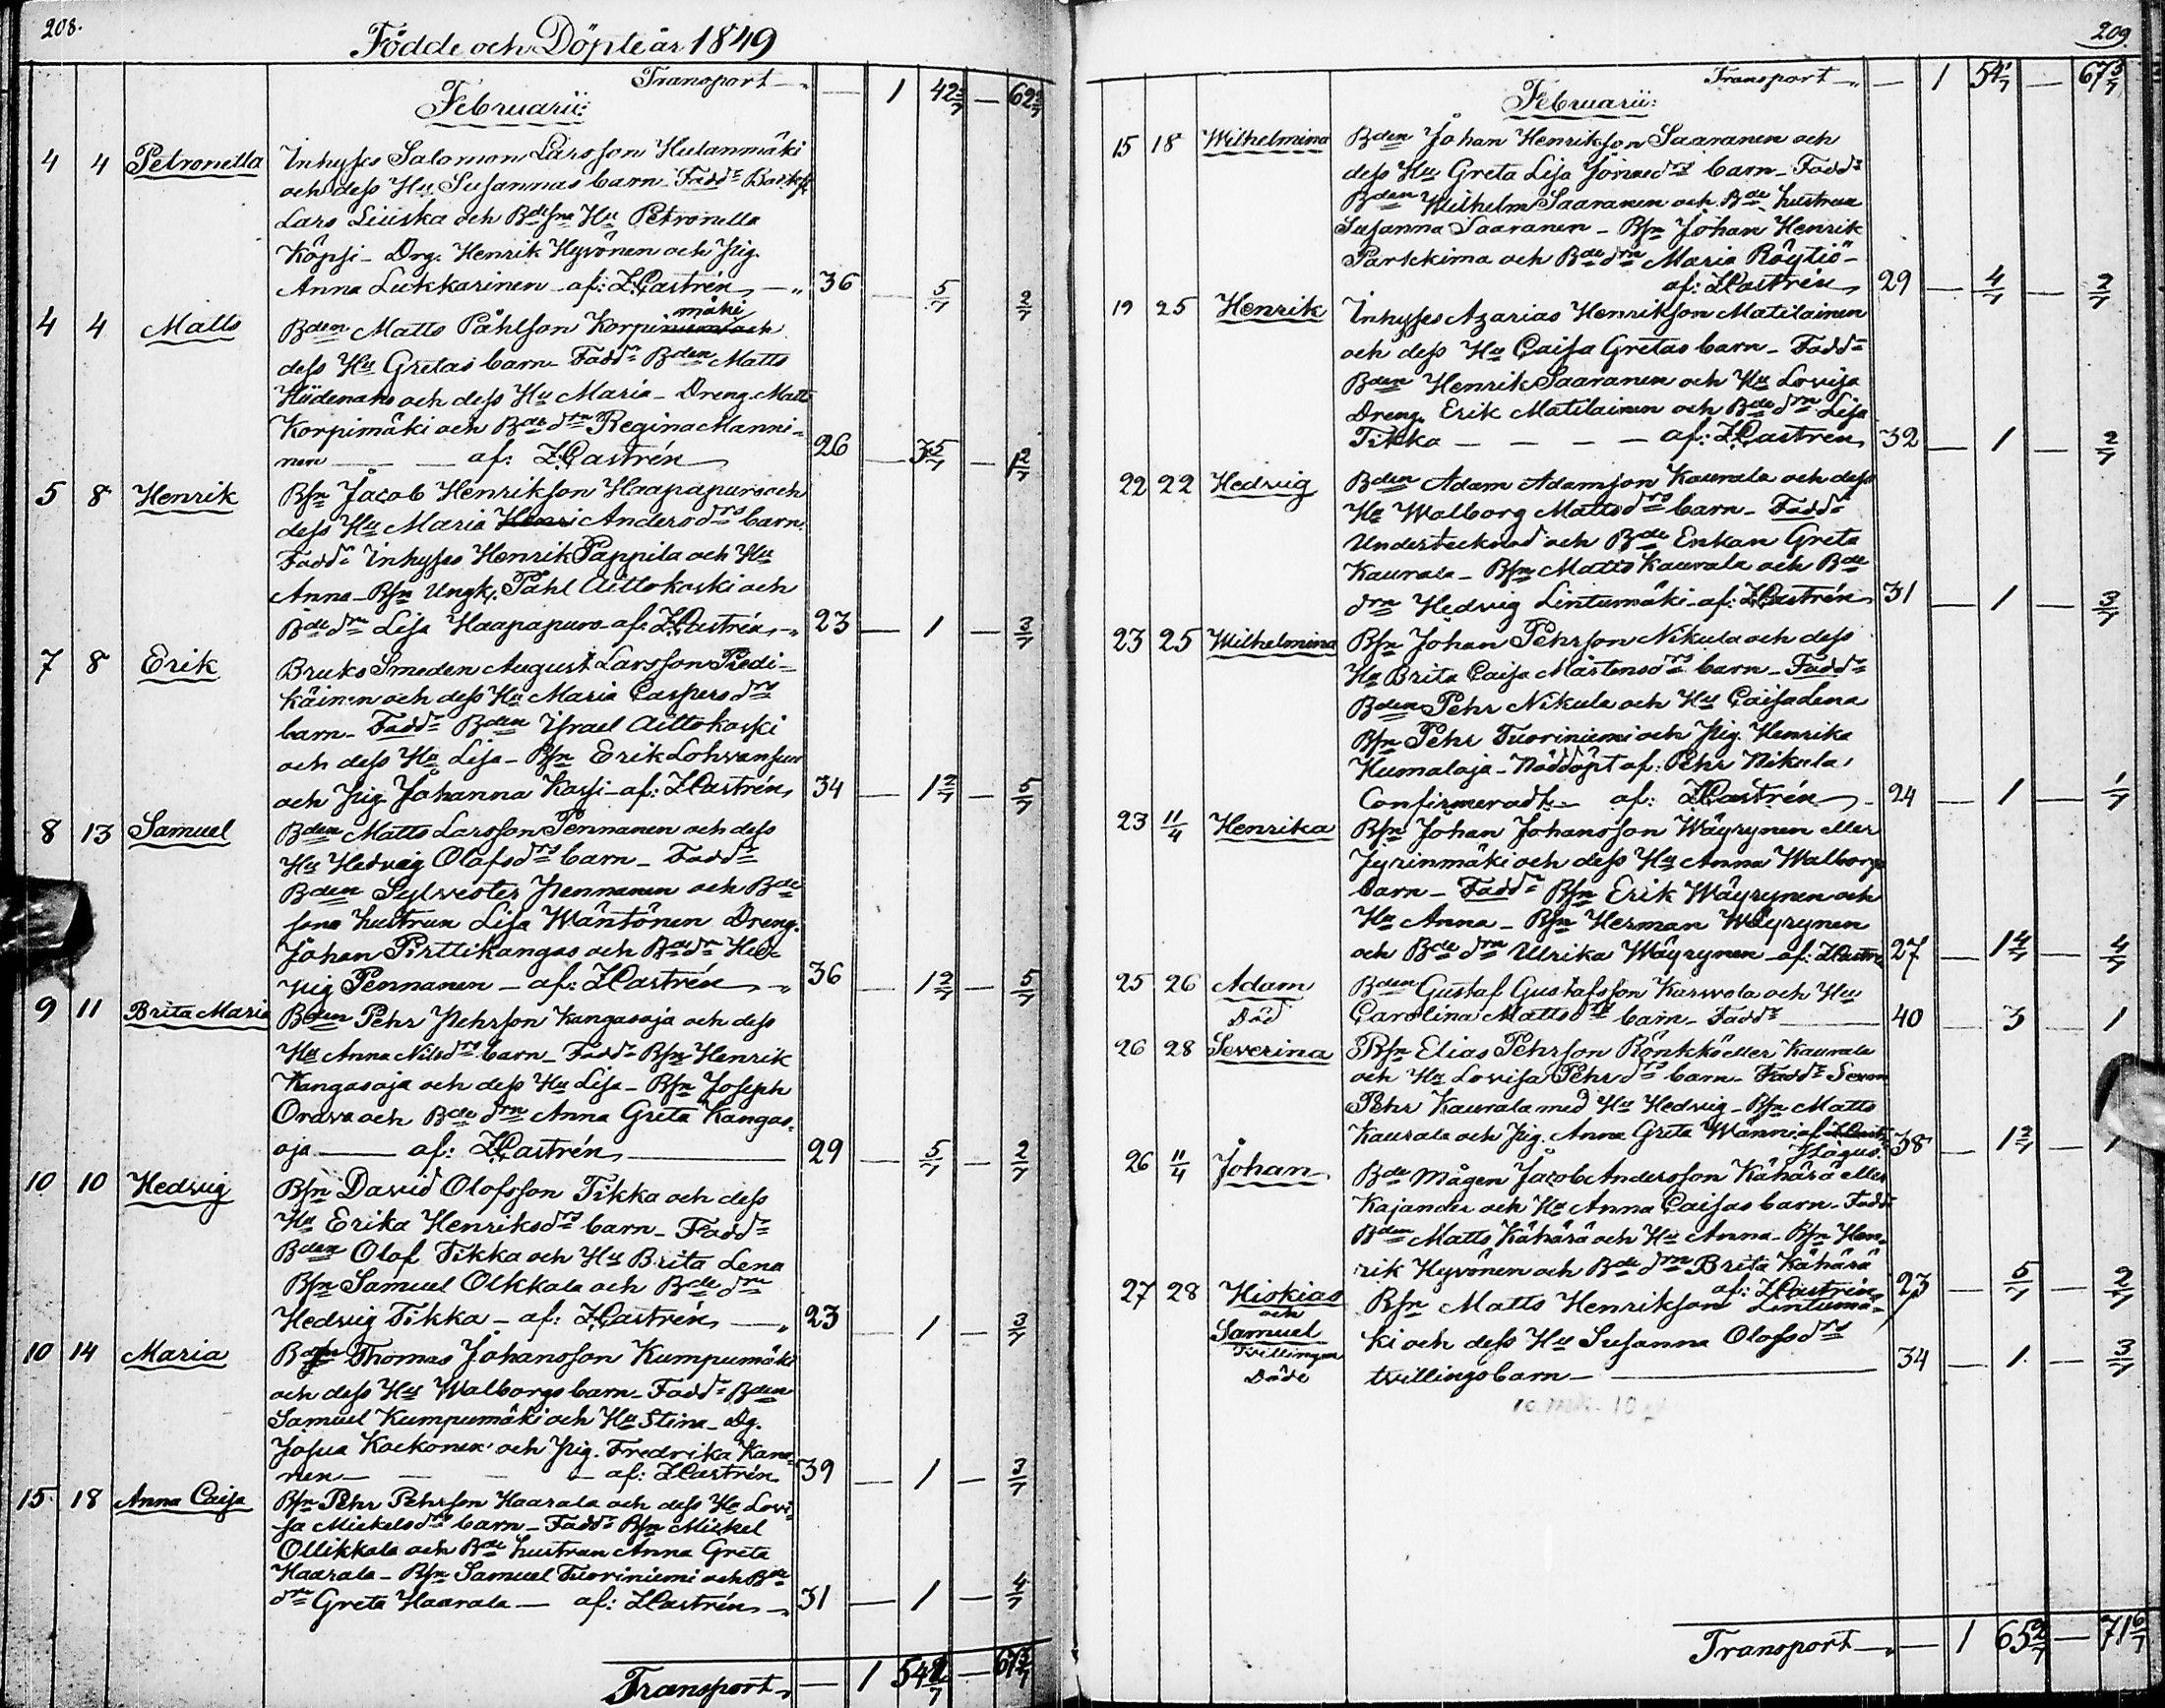 208.
Födde och Döpte år 1849
Transport — — 1 42 3/7 — 62 2/7
Februarii:
4 4 Petronella Inhyses Salomon Larsson Hulanmäki
och dess Hu Susannas barn Fadd
Lars Liuska och Hu Petronella
Köpsi – Drg. Henrik Hyvönen och Pig.
Anna Lukkarinen af: Z. Castrén — 36 — 5/7 2/7
4 4 Matts Bden Matts Påhlson Korpimäki
dess Hu Gretas barn Fadd Bden Matts
och dess Hu Maria – Dreng. Matts
Korpimäki och Bde drn Regina Manni-
nen — — af: Z. Castrén 26 — 3 5/7 — 1 2/7
5 8 Henrik Bsn Jacob Henrikson Haapapuro och
dess Hu Maria Anders drs barn
Fadd Inhyses Henrik Pappila och Hu
Anna – Bsn Ungk. Påhl Aittokoski och
Bde drn Lisa Haapapuro af: Z Castrén — 23 — 1 — 3/7
7 8 Erik Bruks Smeden August Larsson Piedi-
käinen och dess Hu Maria Caspers drs
barn – Fadd Bden Israel Aittokoski
och dess Hu Lisa – Bsn Erik
och Pig Johanna Kassi – af: Z Castrén 34 — 1 2/7 — 5/7
8 13 Samuel Bden Matts Larsson Pennanen och dess
Hu Hedvig Olofs drs barn – Fadd
Bden Sylvester Pennanen och Bde
sona hustrun Lisa Wäntönen Dreng.
Johan Pirttikangas och Bde drn Hed-
vig Pennanen – af: Z Castrén — 36 — 1 2/7 — 5/7
9 11 Brita Maria Bden Pehr Pehrson Kangasoja och dess
Hu Anna Nils drs barn – Fadd Bsn Henrik
Kangasoja och dess Hu Lisa – Bsn Joseph
Orava och Bde drn Anna Greta Kangas-
oja — af: Z Castrén — 29 — 5/7 — 2/7
10 10 Hedvig Bsn David Olofsson Tikka och dess
Hu Erika Henriks drs barn – Fadd
Bden Olof Tikka och Hu Brita Lena
Bsn Samuel Olkkola och Bde drn
Hedvig Tikka – af: Z Castrén — 23 — 1 — 3/7
10 14 Maria Thomas Johansson Kumpumäki
och dess Hu Walborgs barn – Fadd Bden
Samuel Kumpumäki och Hu Stina – Dg.
Josua Kockonen och Pig. Fredrika Kano-
nen — — — af: Z Castrén 39 — 1 — 3/7
15 18 Anna Caisa Bsn Pehr Pehrson Haarala och dess Hu Lovi-
sa Mickels drs barn – Fadd Bsn Mickel
Ollikkala och Bde hustrun Anna Greta
Haarala – Bsn Samuel Tuoriniemi och Bde
drn Greta Haarala — af: Z Castrén — 31 — 1 — 4/7
Transport — 1 54 — 67 5/7
209.
Transport — — 1 54 1/7 — 67 5/7
Februarii:
15 18 Wilhelmina Bden Johan Henrikson Saaranen och
dess Hu Greta Lisa barn – Fadd
Bden Wilhelm Saaranen och Bde hustrun
Susanna Saaranen – Bsn Johan Henrik
Parkkima och Bde drn Maria Röytiö –
af: Z Castrén 29 — 4/7 — 2/7
19 25 Henrik Inhyses Azarias Henrikson Matilainen
och dess Hu Caisa Gretas barn – Fadd
Bden Henrik Saaranen och Hu Lovisa
Dreng. Erik Matilainen och Bde drn Lisa
Tikka — — — — af: Z Castrén 32 — 1 — 2/7
22 22 Hedvig Bden Adam Adamson Kaurala och dess
Hu Walborg Matts drs barn – Fadd
Undertecknad och Bde Enkan Greta
Kaurala – Bsn Matts Kaurala och Bde
drn Hedvig Lintumäki – af: Z Castrén 31 — 1 — 3/7
23 25 Wilhelmina Bsn Johan Pehrson Nikula och dess
Hu Brita Caisa Mårtens drs barn – Fadd
Bden Pehr Nikula och Hu Caisa Lena
Bsn Pehr Tuoriniemi och Pig. Henrika
Humalaja – Nöddöpt af: Pehr Nikula,
Confirmeradt – af: Z Castrén – 24 — 1 — 1/7
23 11/4 Henrika Bsn Johan Johansson Wäyrynen eller
Jyrinmäki och dess Hu Anna Walborgs
barn – Fadd Bsn Erik Wäyrynen och
Hu Anna – Bsn Herman Wäyrynen
och Bde drn Ulrika Wäyrynen – af: Z Castrén 27 — 1 4/7 — 4/7
25 26 Adam Bden Gustaf Gustafsson Karvola och Hu
Död Carolina Matts drs barn – Fadd — 40 — 3 — 1
26 28 Severina Bsn Elias Pehrson Rönkkö eller Kaurala
och Hu Lovisa Pehrs drs barn – Fadd
Pehr Kaurala med Hu Hedvig – Bsn Matts
Kaurala och Pig. Anna Greta Wänni af 38 — 1 2/7 — 1
26 11/4 Johan Bde Mågen Jacob Andersson Kähärä eller
Kajander och Hu Anna Caisas barn – Fadd
Bden Matts Kähärä och Hu Anna – Bsn Hen-
rik Hyvönen och Bde drn Brita Kähärä
af: Z Castrén 23 — 5/7 — 2/7
27 28 Hiskias Bsn Matts Henrikson Lintumä-
och
Samuel ki och dess Hu Susanna Olofs drs
Tvillingar
Döde tvillingsbarn — — 34 — 1 — 3/7
Transport — — 1 65 2/7 — 71 6/7